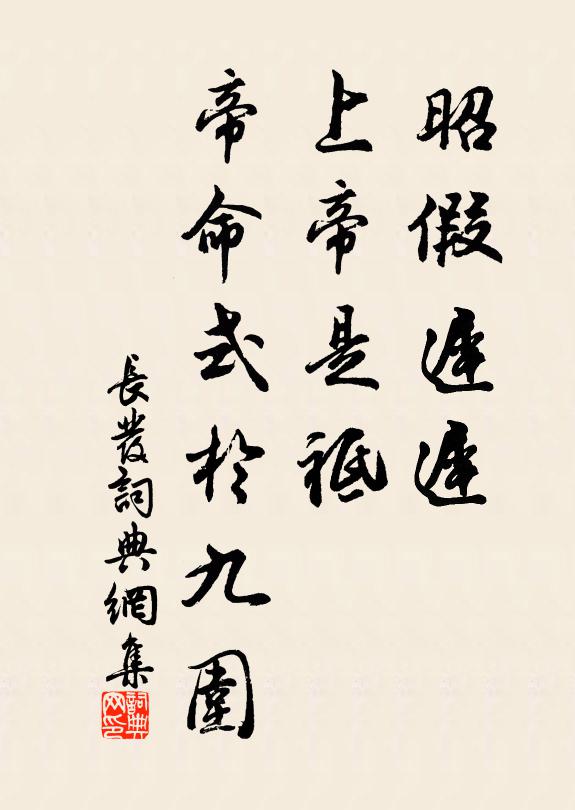 昭假遲遲
上帝是祗
帝命式於九圍
長發詞典網集
詞典網印